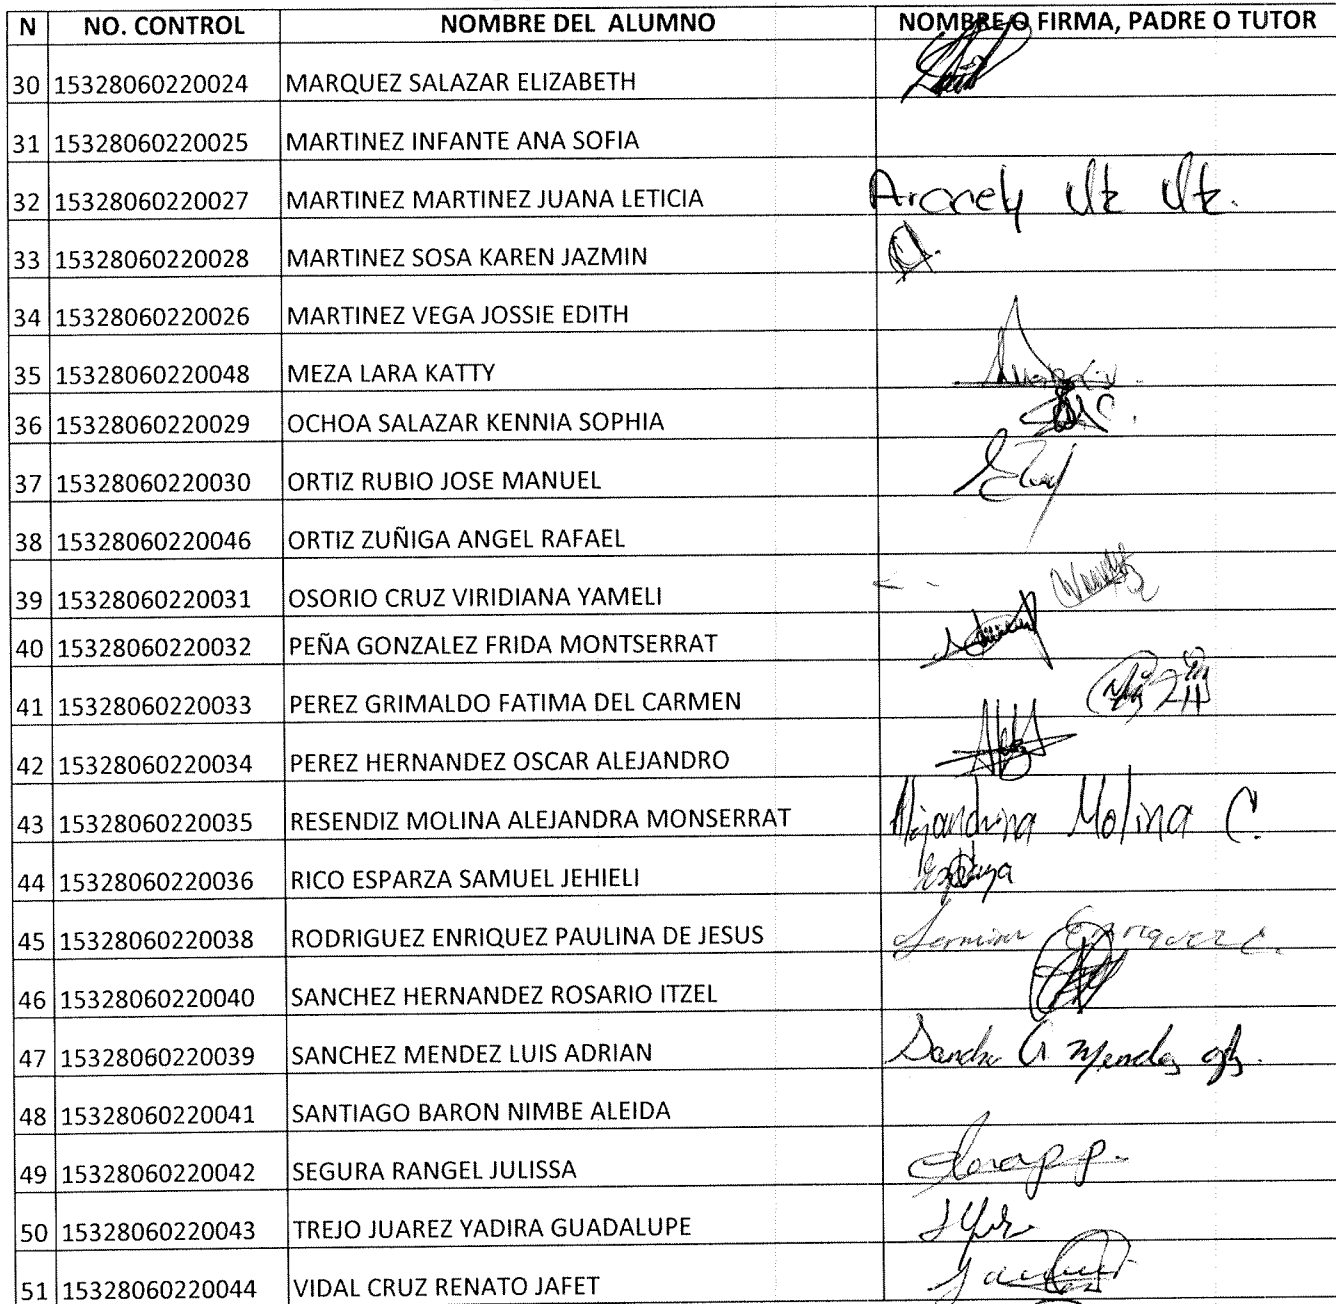 N NO. CONTROL NOMBRE DEL ALUMNO NOMBRE O FIRMA, PADRE O TUTOR
30 15328060220024 MARQUEZ SALAZAR ELIZABETH
31 15328060220025 MARTINEZ INFANTE ANA SOFIA
32 15328060220027 MARTINEZ MARTINEZ JUANA LETICIA
33 15328060220028 MARTINEZ SOSA KAREN JAZMIN
34 15328060220026 MARTINEZ VEGA JOSSIE EDITH
35 15328060220048 MEZA LARA KATTY
36 15328060220029 OCHOA SALAZAR KENNIA SOPHIA
37 15328060220030 ORTIZ RUBIO JOSE MANUEL
38 15328060220046 ORTIZ ZUÑIGA ANGEL RAFAEL
39 15328060220031 OSORIO CRUZ VIRIDIANA YAMELI
40 15328060220032 PEÑA GONZALEZ FRIDA MONTSERRAT
41 15328060220033 PEREZ GRIMALDO FATIMA DEL CARMEN
42 15328060220034 PEREZ HERNANDEZ OSCAR ALEJANDRO
43 15328060220035 RESENDIZ MOLINA ALEJANDRA MONSERRAT Molina C.
44 15328060220036 RICO ESPARZA SAMUEL JEHIELI
45 15328060220038 RODRIGUEZ ENRIQUEZ PAULINA DE JESUS Enriquez C.
46 15328060220040 SANCHEZ HERNANDEZ ROSARIO ITZEL
47 15328060220039 SANCHEZ MENDEZ LUIS ADRIAN
48 15328060220041 SANTIAGO BARON NIMBE ALEIDA
49 15328060220042 SEGURA RANGEL JULISSA
50 15328060220043 TREJO JUAREZ YADIRA GUADALUPE
51 15328060220044 VIDAL CRUZ RENATO JAFET